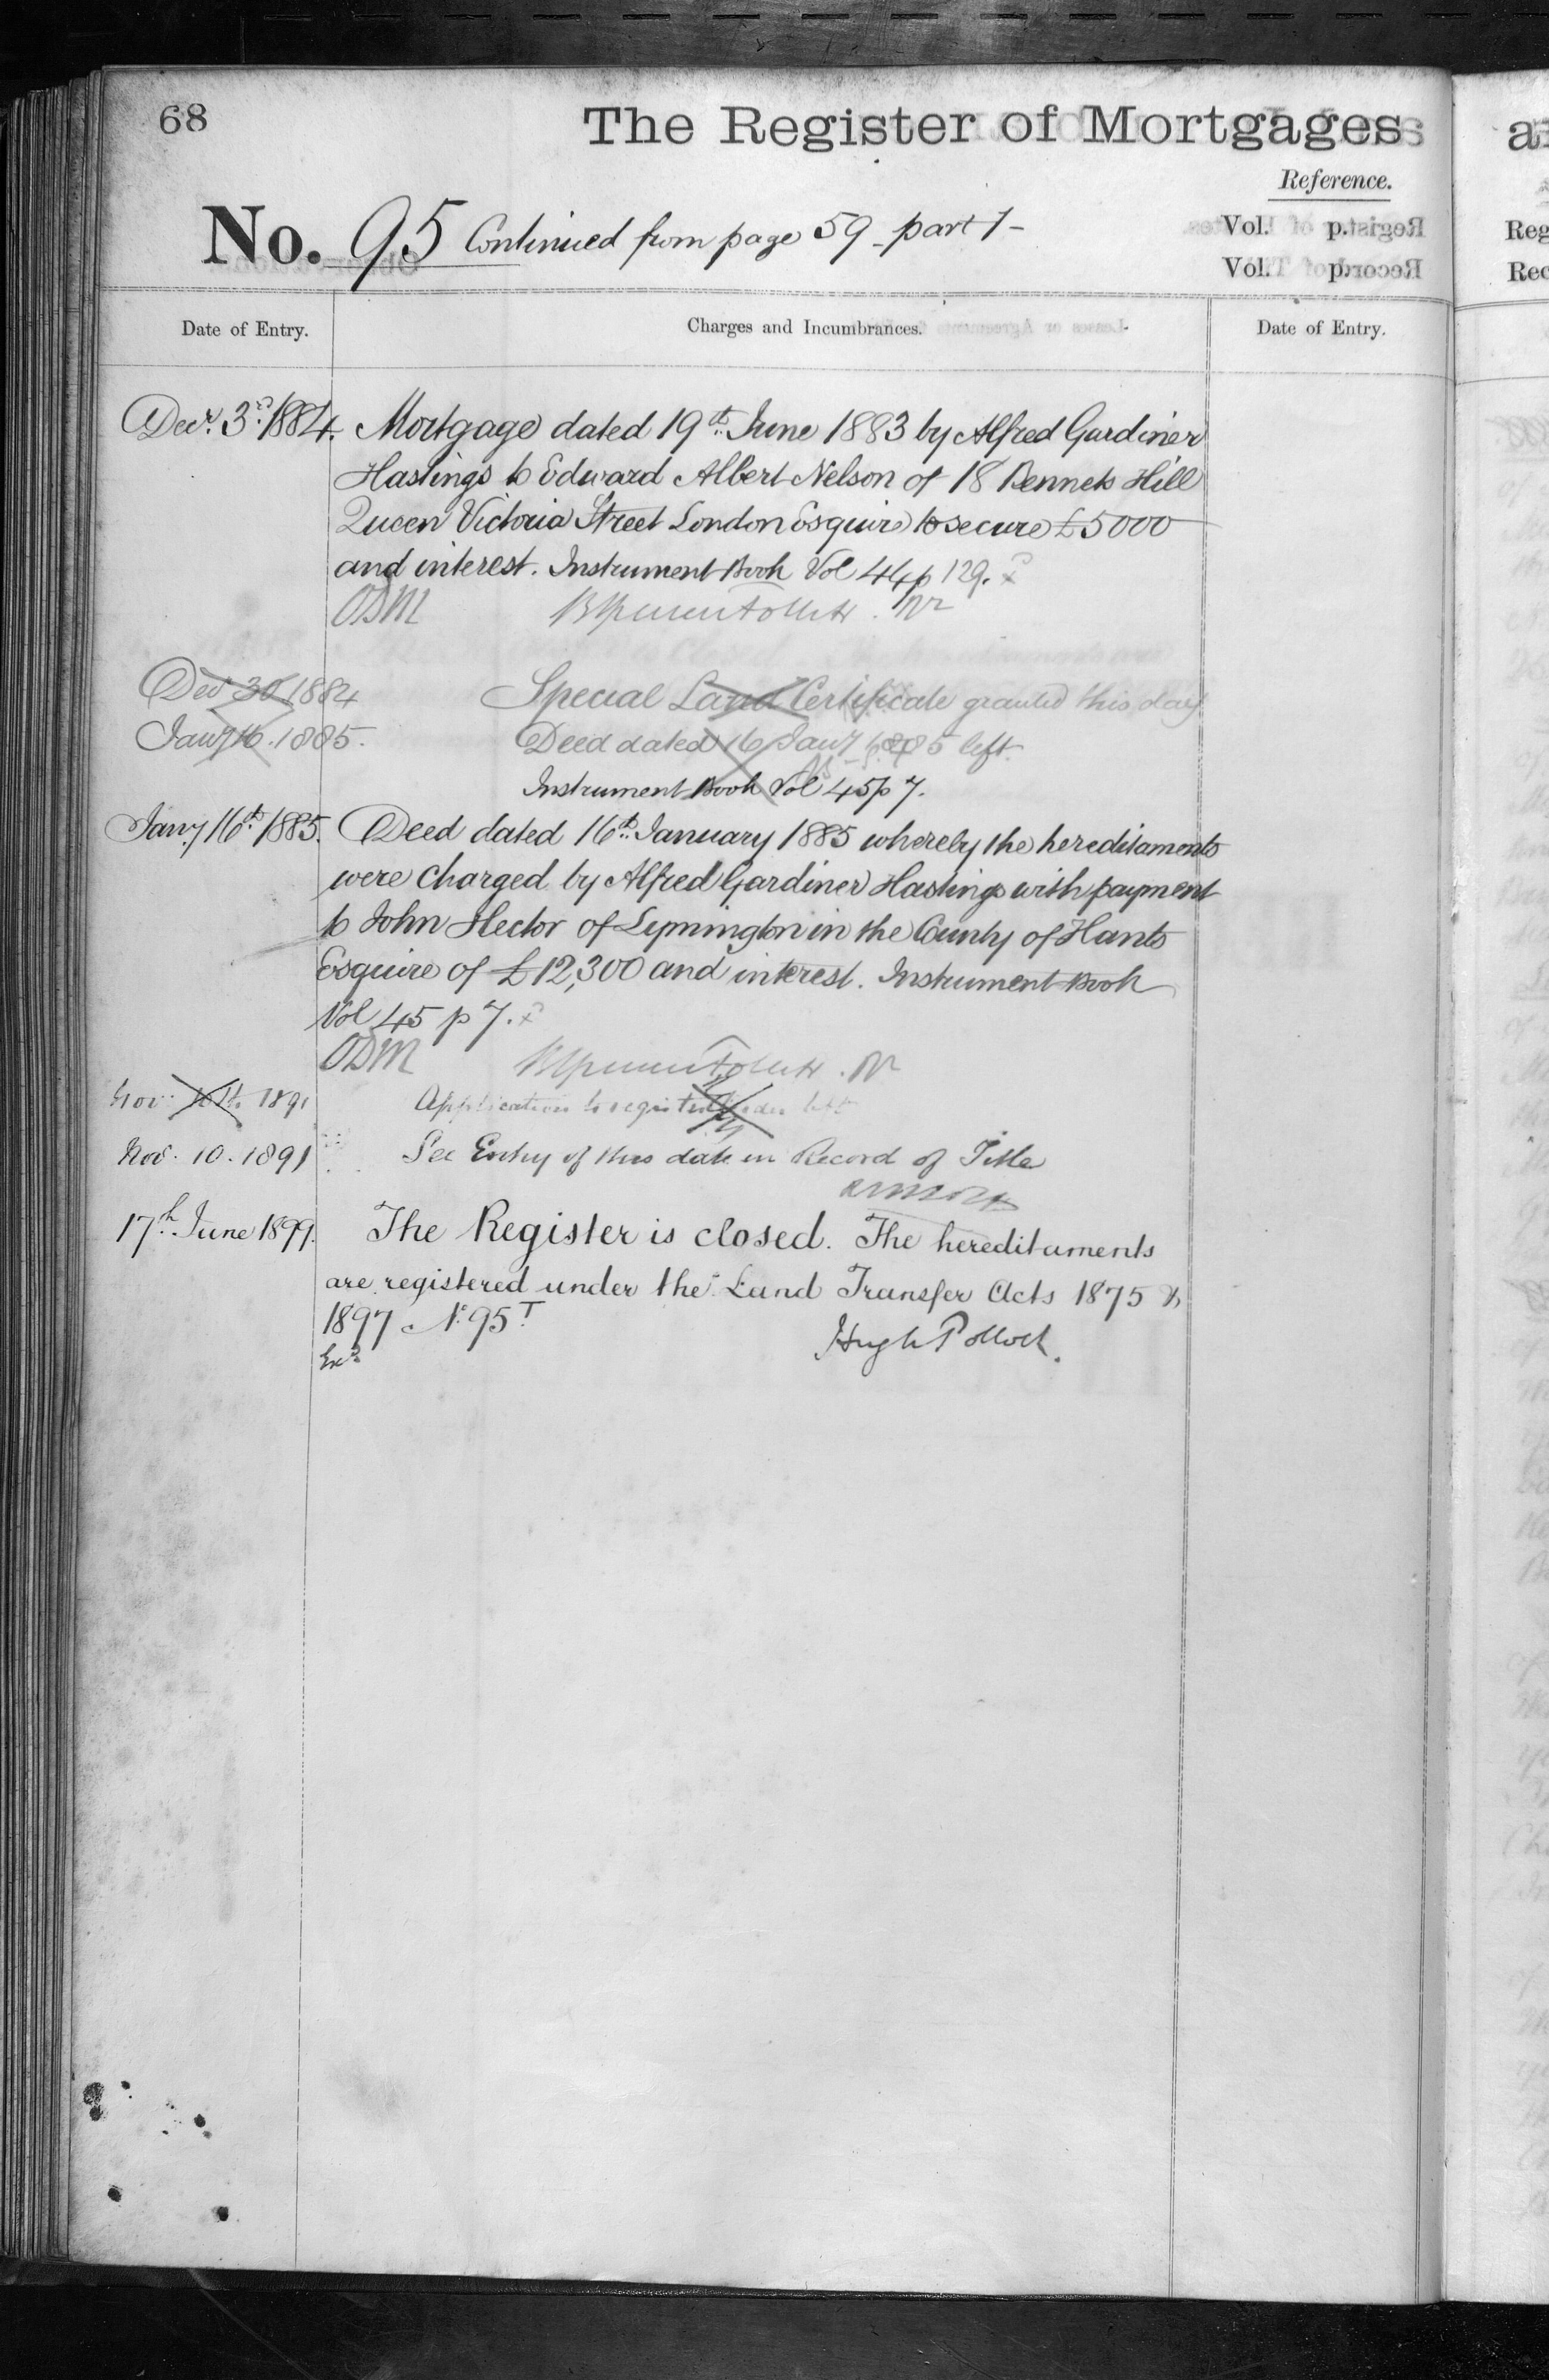 68
The Register of Mortgages
Reference.
No. 95 Continued from page 59 part 1
Vol. p.
Vol. p.
Date of Entry.
Charges and Incumbrances.
Date of Entry.
Decr. 3rd 1884. Mortgage dated 19th June 1883 by Alfred Gardiner
Hastings to Edward Albert Nelson of 18 Bennets Hill
Queen Victoria Street London Esquire to secure £5000
and interest. Instrument Book Vol 44 p 129.
ODM
Decr 30 1884 Special Land Certificate granted this day
Jany 16. 1885. Deed dated 16 Jany 1885 left.
Instrument Book Vol 45 p 7.
Jany 16th 1885. Deed dated 16th January 1885 whereby the hereditaments
were charged by Alfred Gardiner Hastings with payment
to John Hector of Lymington in the County of Hants
Esquire of £12,300 and interest. Instrument Book
Vol 45 p 7.
ODM
Nov. 10th 1891 Application to register order left
Nov. 10. 1891 See Entry of this date in Record of Title
17th June 1899. The Register is closed. The hereditaments
are registered under the Land Transfer Acts 1875 &
1897 No. 95T.
Exd Hugh Pollock.